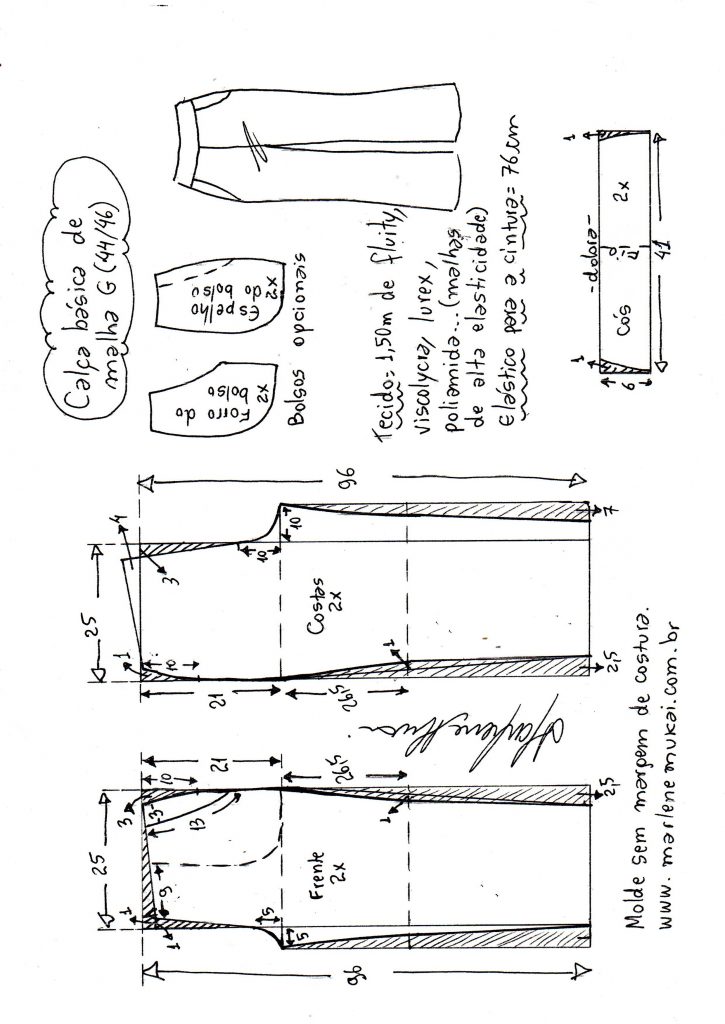 Calça básica de
malha G (44/46)
Forro do
bolso
2x
Espelho
do bolso
2x
Bolsos opcionais
Tecido= 1,50m de fluity,
viscolycra, lurex,
poliamida... (malhas
de alta elasticidade)
Elástico para a cintura= 76cm
1
1
-dobra-
Cós
2x
6
41
25
4
3
1
10
10
10
96
Costas
2x
21
26,5
1
2,5
7
25
3
3
13
10
21
26,5
9
1
1
5
5
Frente
2x
1
2,5
96
Molde sem margem de costura.
www.marlenemukai.com.br